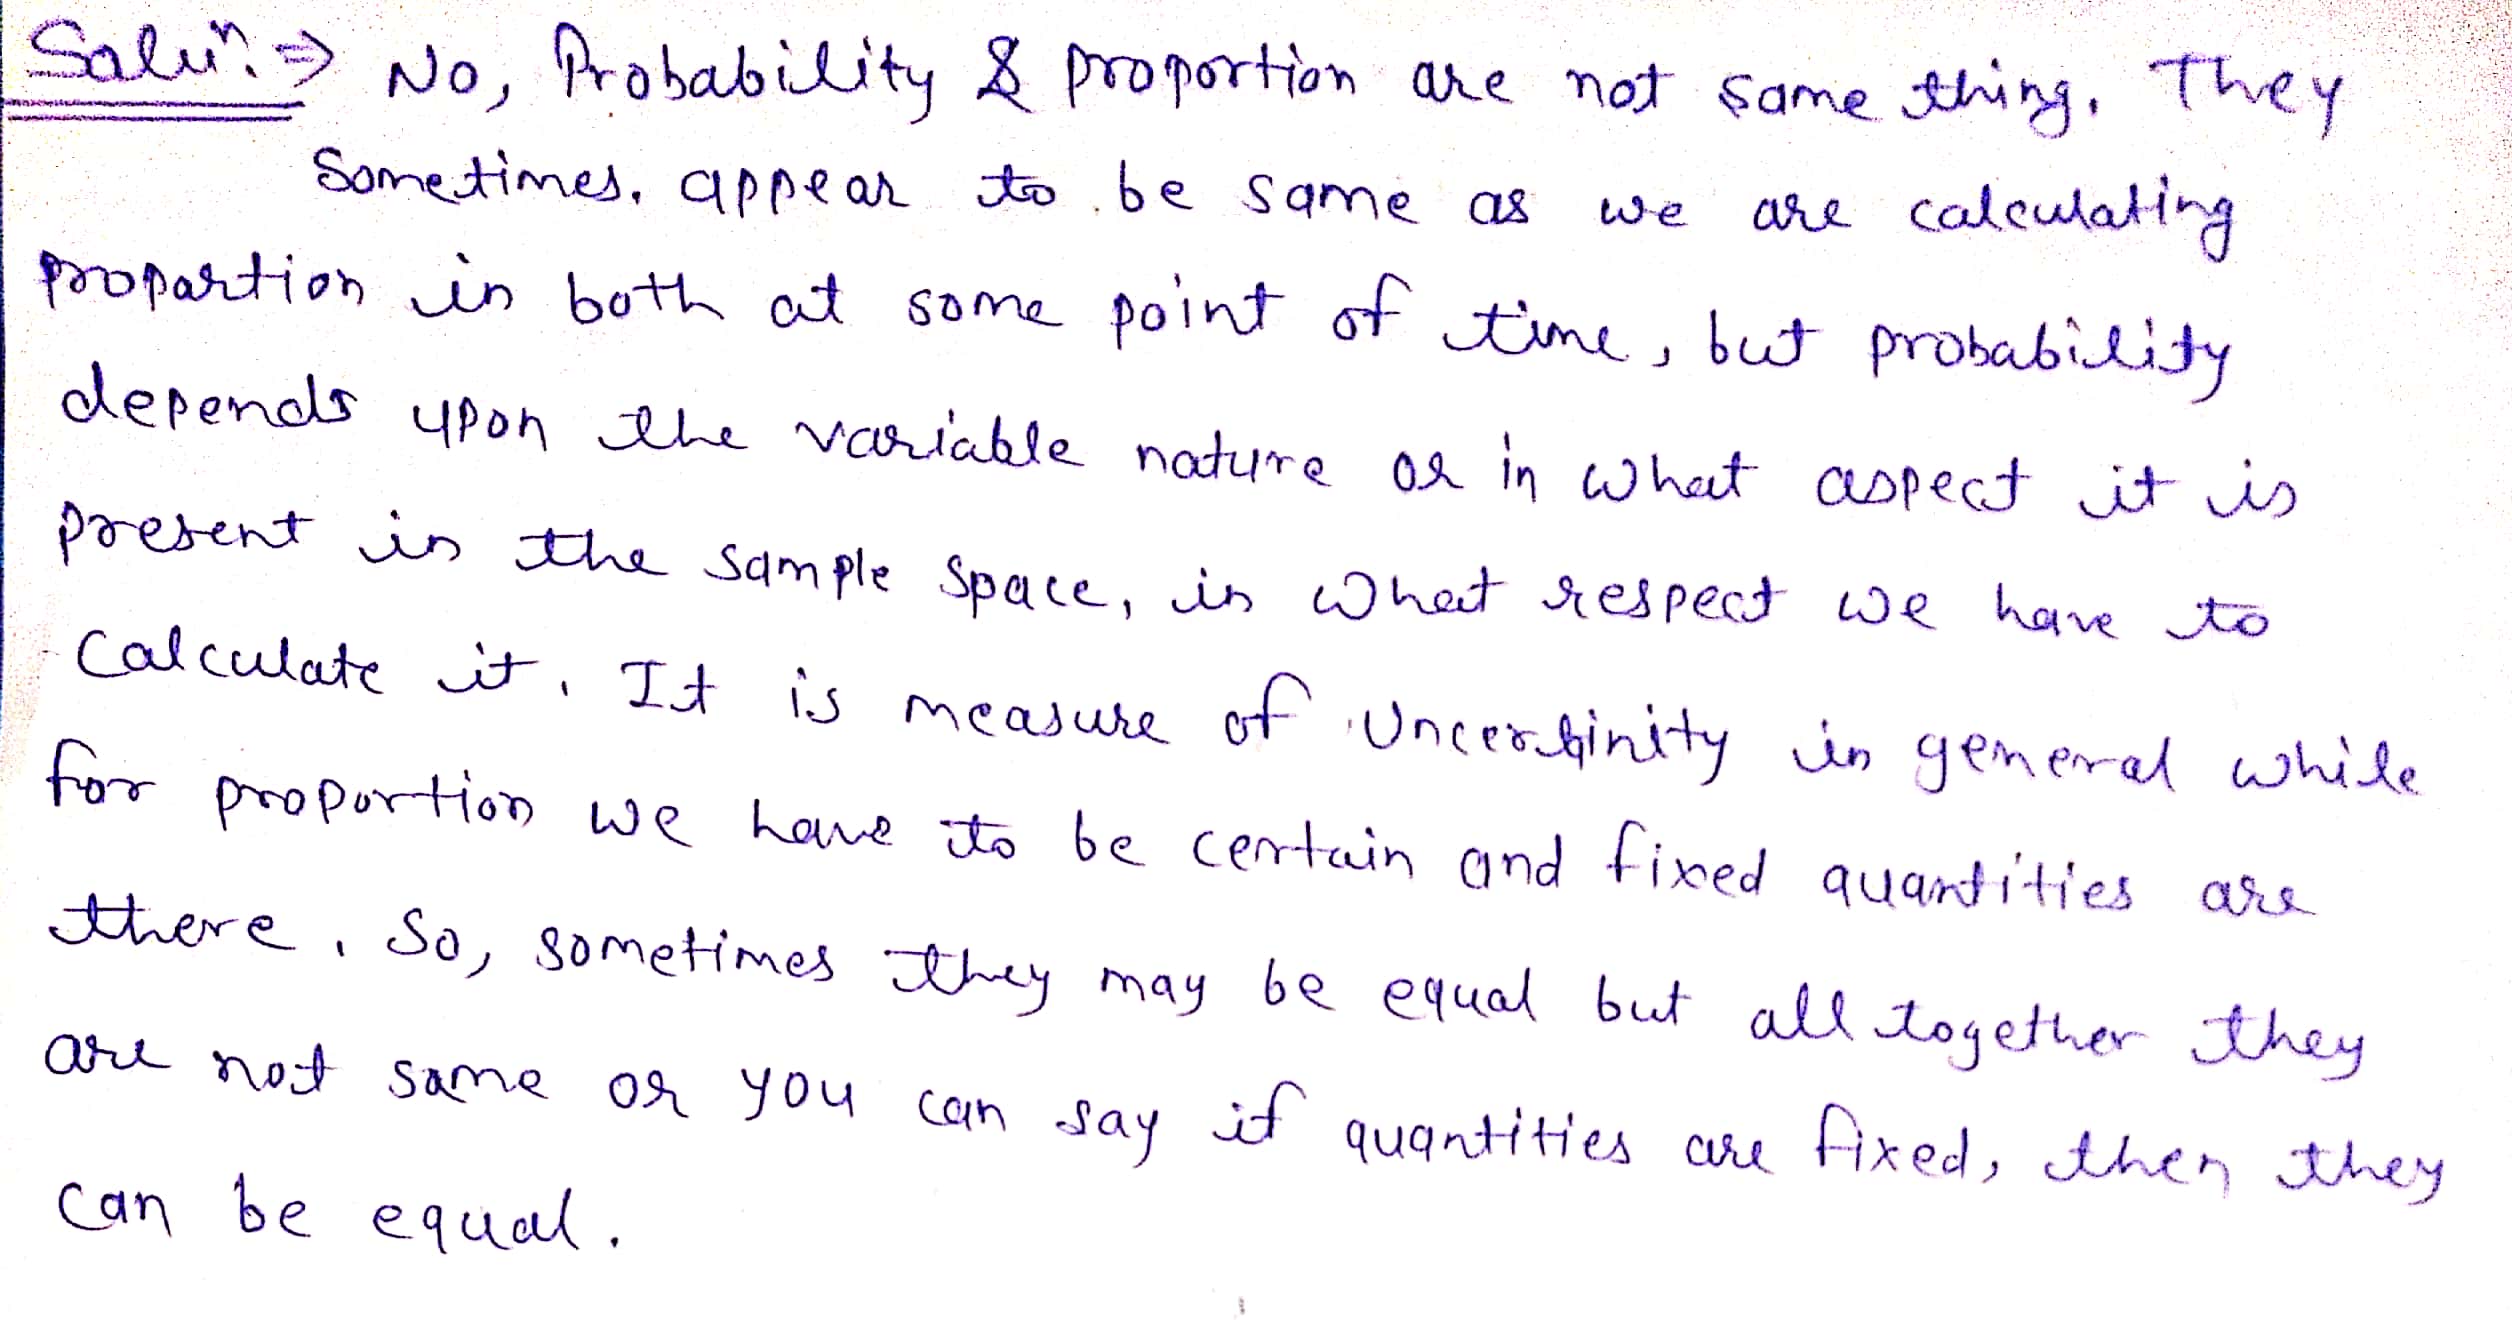 Solun. ⇒ No, Probability & proportion are not same thing. They
Sometimes. appear to be same as we are calculating
proportion in both at some point of time, but probability
depends upon the variable nature or in what aspect it is
present in the sample space, in what respect we have to
calculate it. It is measure of Uncertinity in general while
for proportion we have to be certain and fixed quantities are
there. So, sometimes they may be equal but all together they
are not same or you can say if quantities are fixed, then they
can be equal.